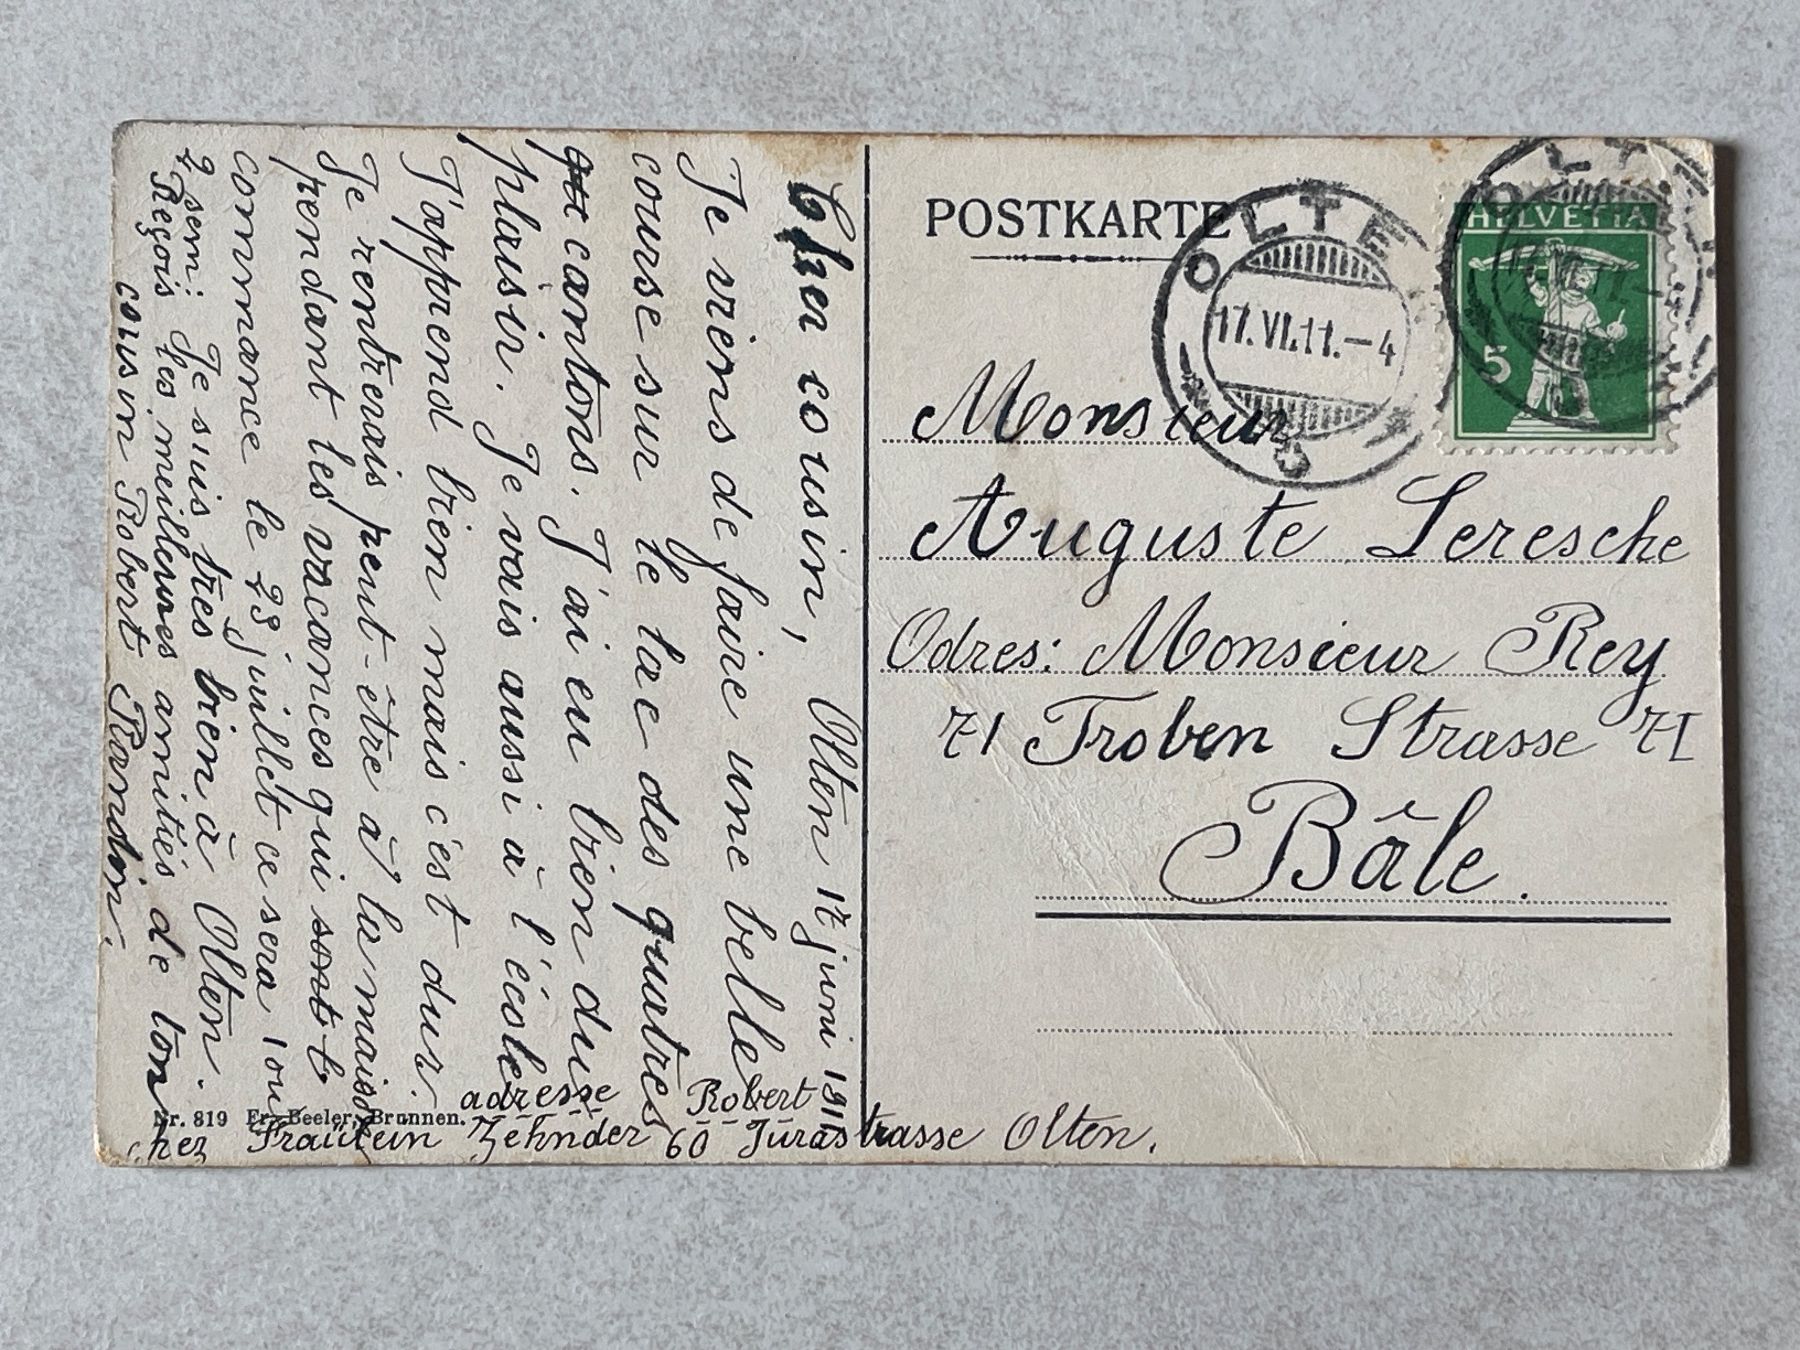 POSTKARTE
OLTEN
17.VI.11.-4
OLTEN
17.VI.11.-4
HELVETIA
5
Monsieur
Auguste Leresche
Adres: Monsieur Rey
71 Froben Strasse 71
Bâle.
Cher cousin, Olten 17 juni 1911
Je viens de faire une belle
course sur le lac des quatres
cantons. J'ai eu bien du
plaisir. Je vais aussi à l'école
J'apprend bien mais c'est dur.
Je rentrerais peut-être à la maison
pendant les vacances qui sont
commance le 23 juillet ce sera 1 ou
2 sem: Je suis très bien à Olten.
Reçois les meilleures amitiés de ton
cousin Robert Randin.
adresse Robert
chez Fraülein Zehnder 60 Jurastrasse Olten.
Nr. 819 Fr. Beeler, Brunnen.